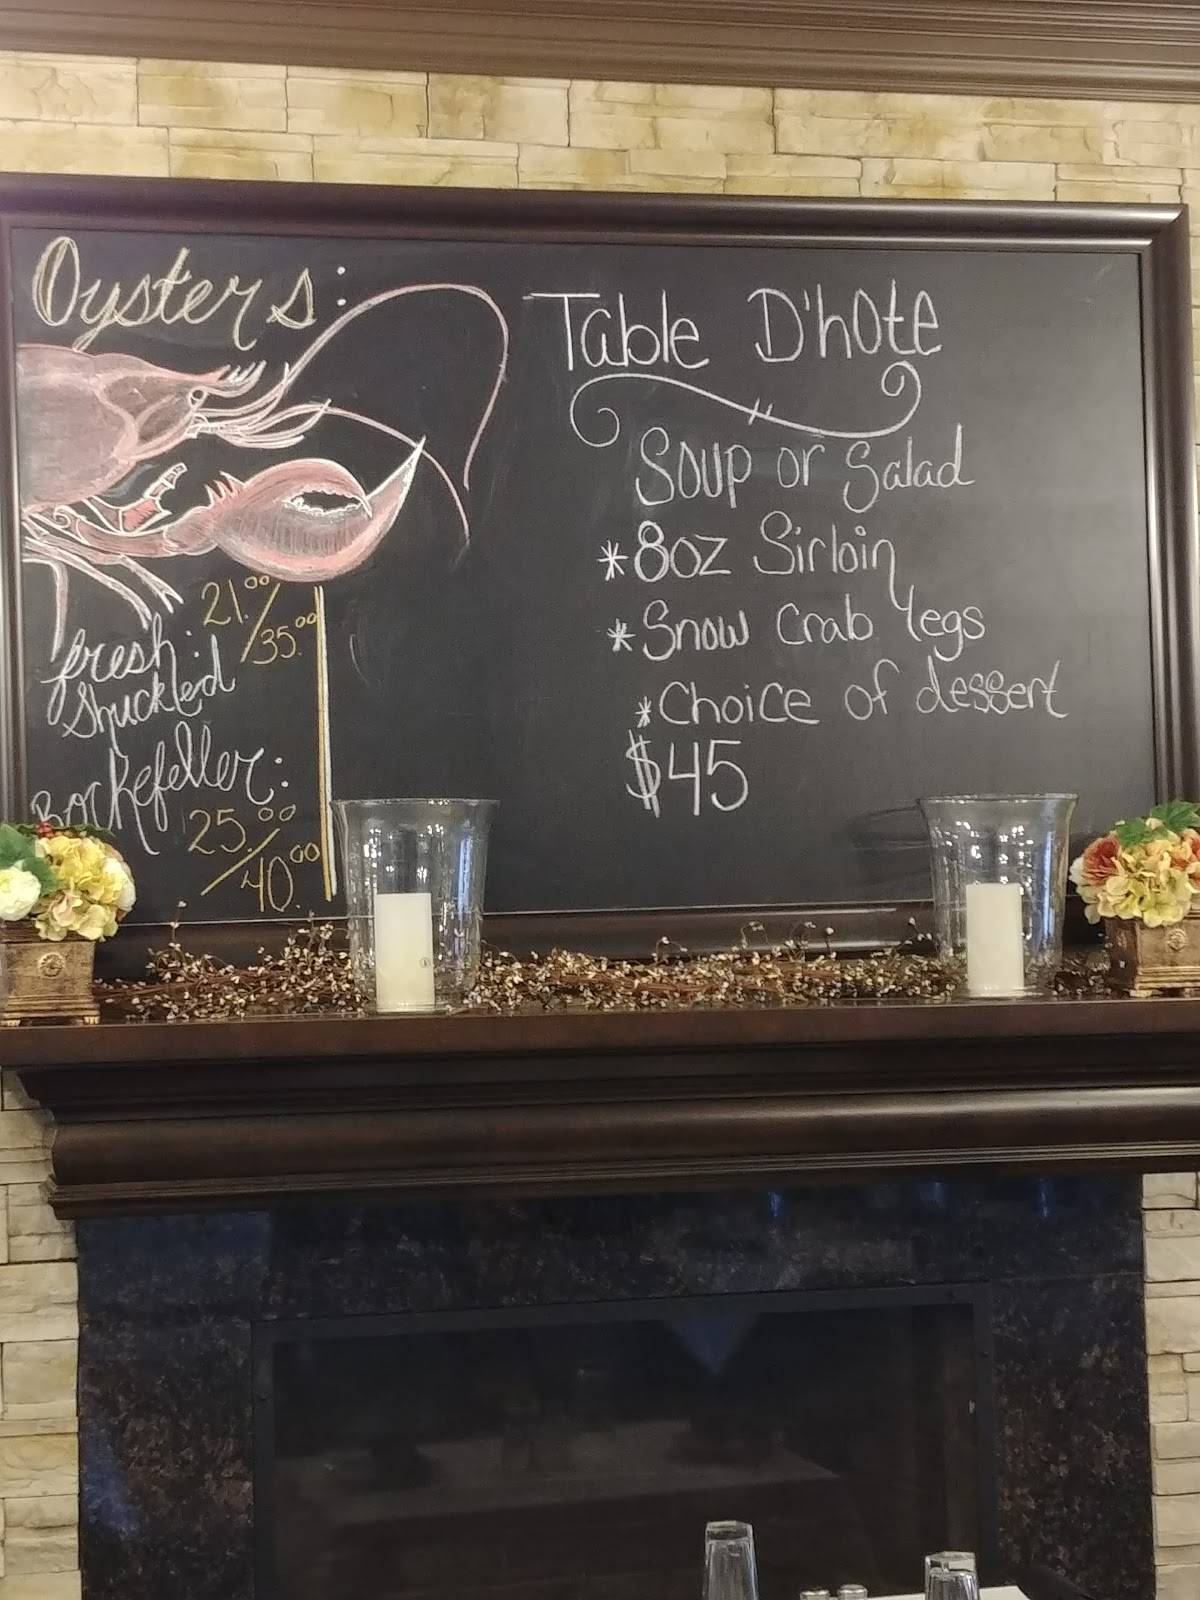 Oysters:
fresh: 21.00/35.00
Shuckled
Rockefeller:
25.00/40.00
Table D'hOte
Soup or Salad
*8oz Sirloin
*Snow crab legs
*Choice of dessert
$45